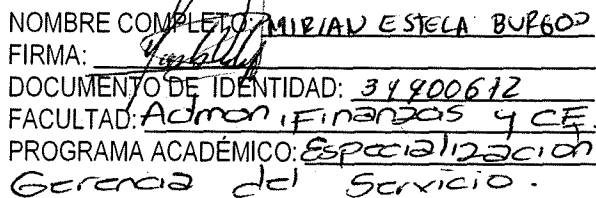 NOMBRE COMPLETO: MIRIAN ESTELA BURGOS
FIRMA:
DOCUMENTO DE IDENTIDAD: 34900612
FACULTAD: Admon, Finanzas y CE.
PROGRAMA ACADÉMICO: Especialización
Gerencia del Servicio.